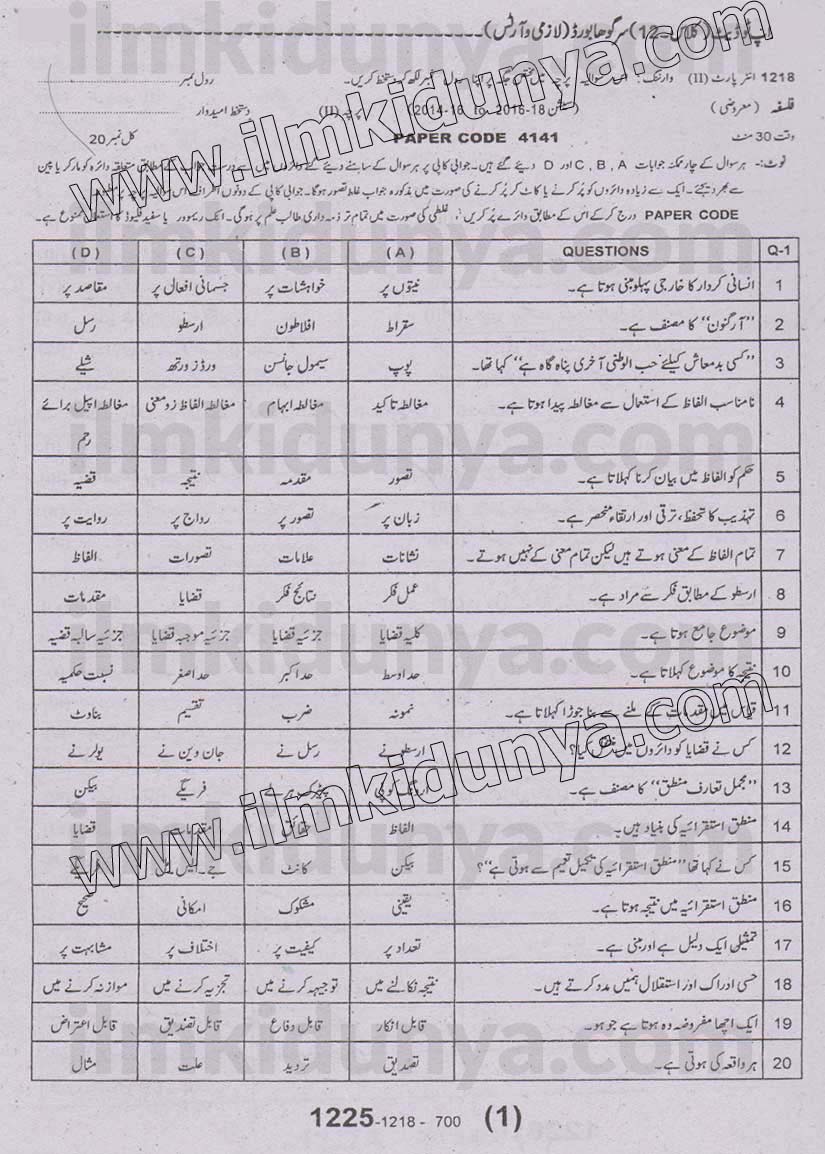 اپ ٹو ڈیٹ (کلاس 12) سرگودھا بورڈ (لازمی و آرٹس)
1218 انٹر پارٹ (II) وارننگ: اس سوالیہ پرچہ پر اپنا رول نمبر لکھ کر دستخط کریں۔ رول نمبر
فلسفہ (معروضی) (سیشن 2014-16 to 2016-18) پرچہ (II) دستخط امیدوار
وقت 30 منٹ PAPER CODE 4141 کل نمبر 20
نوٹ:۔ ہر سوال کے چار ممکنہ جوابات C, B, A اور D دیئے گئے ہیں۔ جوابی کاپی پر ہر سوال کے سامنے دیئے گئے دائروں میں سے درست جواب کے مطابق متعلقہ دائرہ کو مارکر یا پین
سے بھر دیجئے۔ ایک سے زیادہ دائروں کو پُر کرنے یا کاٹ کر پُر کرنے کی صورت میں مذکورہ جواب غلط تصور ہوگا۔ جوابی کاپی کے دونوں اطراف اس سوالیہ پرچہ پر
PAPER CODE درج کر کے اس کے مطابق دائرے پُر کریں، غلطی کی صورت میں تمام تر ذمہ داری طالب علم پر ہوگی۔ انک ریمور یا سفید فلیوڈ کا استعمال ممنوع ہے۔
Q-1 QUESTIONS (A) (B) (C) (D)
1 انسانی کردار کا خارجی پہلو مبنی ہوتا ہے۔ نیتوں پر خواہشات پر جسمانی افعال پر مقاصد پر
2 ”آرگنون“ کا مصنف ہے۔ سقراط افلاطون ارسطو رسل
3 ”کسی بدمعاش کیلئے حب الوطنی آخری پناہ گاہ ہے“ کہا تھا۔ پوپ سیموئل جانسن ورڈزورتھ شیلے
4 نامناسب الفاظ کے استعمال سے مغالطہ پیدا ہوتا ہے۔ مغالطہ تاکید مغالطہ ابہام مغالطہ الفاظ ذومعنی مغالطہ اپیل برائے
رحم
5 حکم کو الفاظ میں بیان کرنا کہلاتا ہے۔ تصور مقدمہ نتیجہ قضیہ
6 تہذیب کا تحفظ، ترقی اور ارتقاء منحصر ہے۔ زبان پر تصور پر رواج پر روایت پر
7 تمام الفاظ کے معنی ہوتے ہیں لیکن تمام معنی کے نہیں ہوتے۔ نشانات علامات تصورات الفاظ
8 ارسطو کے مطابق فکر سے مراد ہے۔ عمل فکر نتائج فکر قضایا مقدمات
9 موضوع جامع ہوتا ہے۔ کلیہ قضایا جزئیہ قضایا جزئیہ موجبہ قضایا جزئیہ سالبہ قضیہ
10 نتیجہ کا موضوع کہلاتا ہے۔ حد اوسط حد اکبر حد اصغر نسبت حکمیہ
11 قیاس میں مقدمات کے ملنے سے بنا جوڑا کہلاتا ہے۔ نمونہ ضرب تقسیم بناوٹ
12 کس نے قضایا کو دائروں میں کیا؟ ارسطو نے رسل نے جان وین نے یولر نے
13 ”مجمل تعارف منطق“ کا مصنف ہے۔ ارونگ کوپی پیٹرک ہرلے فریگے بیکن
14 منطق استقرائیہ کی بنیاد ہیں۔ الفاظ حقائق مقدمات قضایا
15 کس نے کہا تھا ”منطق استقرائیہ کی تکمیل تعمیم سے ہوتی ہے“؟ بیکن کانٹ جے۔ ایس مل
16 منطق استقرائیہ میں نتیجہ ہوتا ہے۔ یقینی مشکوک امکانی صحیح
17 تمثیل ایک دلیل ہے اور مبنی ہے۔ تعداد پر کیفیت پر اختلاف پر مشابہت پر
18 حسی ادراک اور استقلال ہمیں مدد کرتے ہیں۔ نتیجہ نکالنے میں توجیہہ کرنے میں تجزیہ کرنے میں موازنہ کرنے میں
19 ایک اچھا مفروضہ وہ ہوتا ہے جو ہو۔ قابل انکار قابل دفاع قابل تصدیق قابل اعتراض
20 ہر واقعہ کی ہوتی ہے۔ تصدیق تردید علت مثال
1225-1218 - 700 (1)
www.ilmkidunya.com
www.ilmkidunya.com
ilmkidunya.com
ilmkidunya.com
ilmkidunya.com
ilmkidunya.com